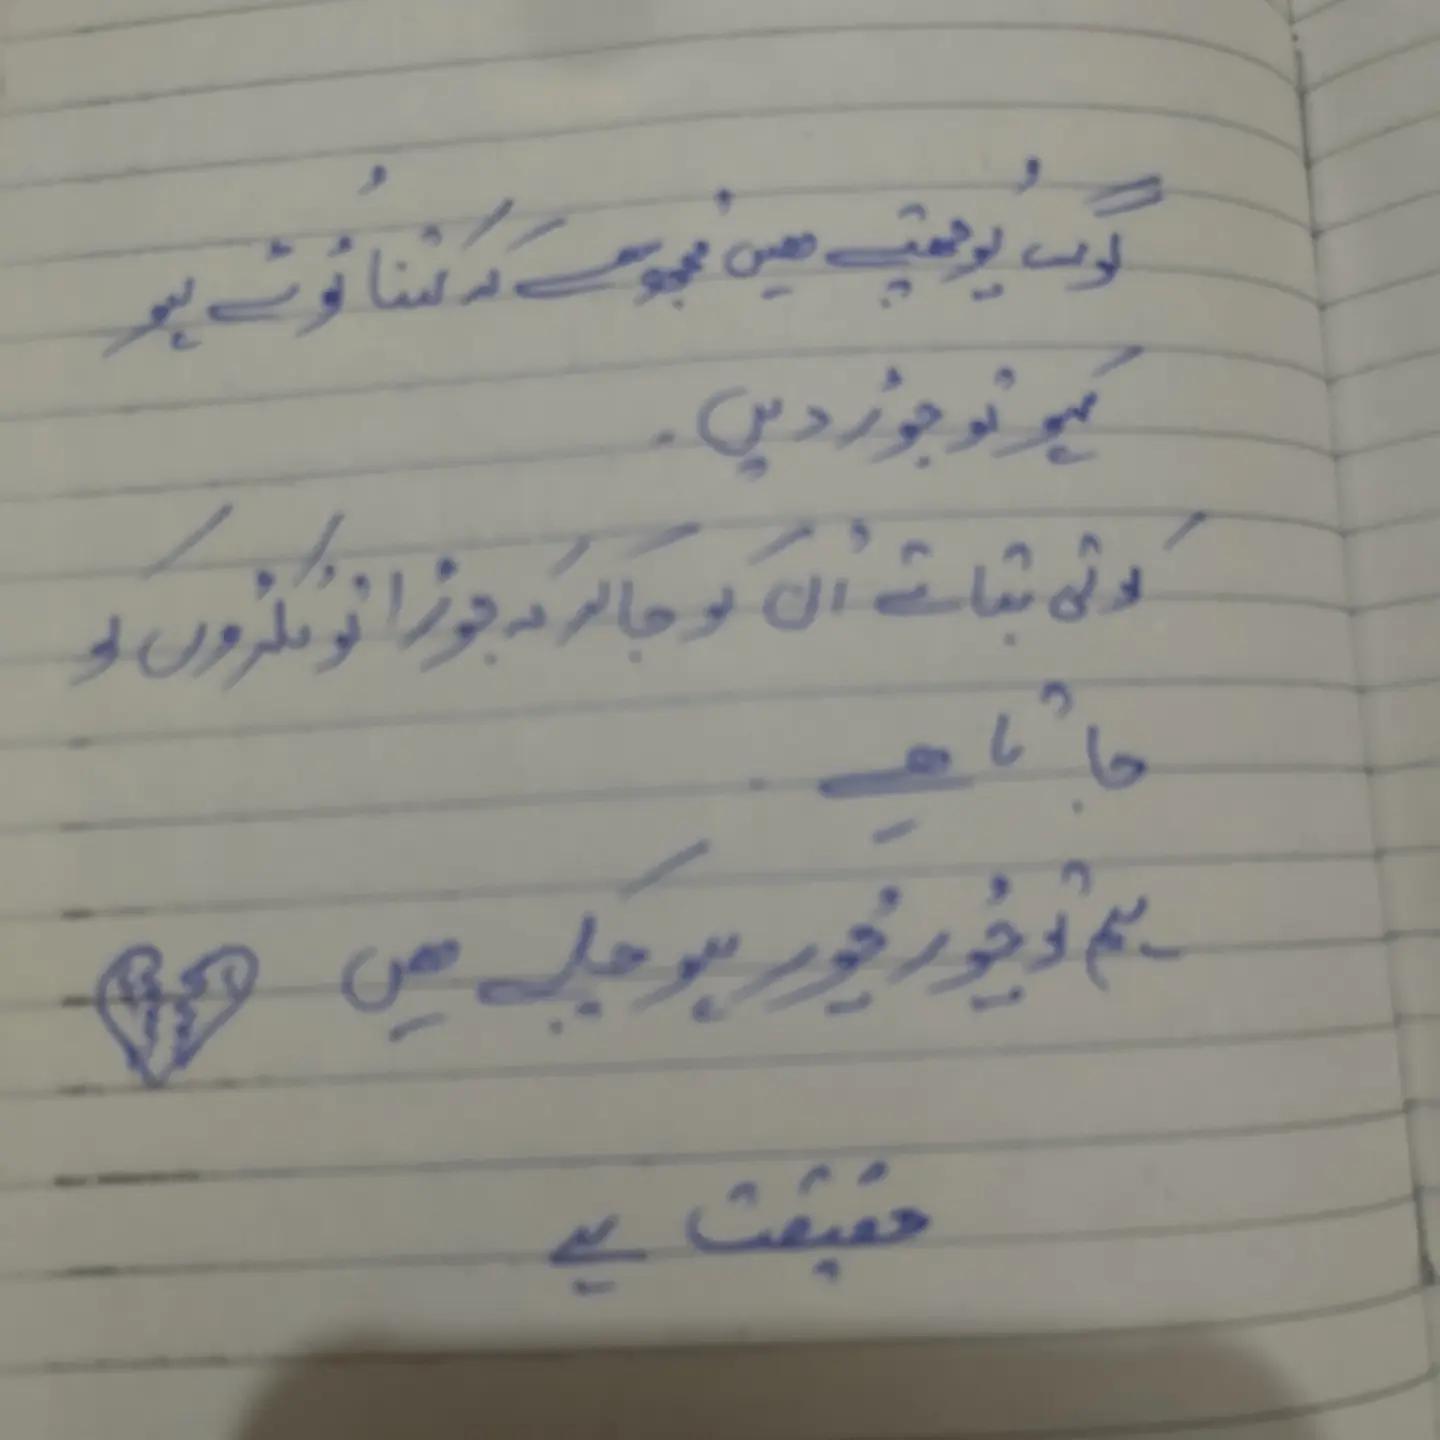 لوگ پوچھتے ھیں مجھ سے کہ کتنا ٹوٹے ہو
کہو تو جوڑ دیں .
کوئی بتائے اُن کو جا کر کہ جوڑا تو ٹکڑوں کو
جاتا ھے .
ہم تو چُور چُور ہو چکے ھیں
حقیقت ہے